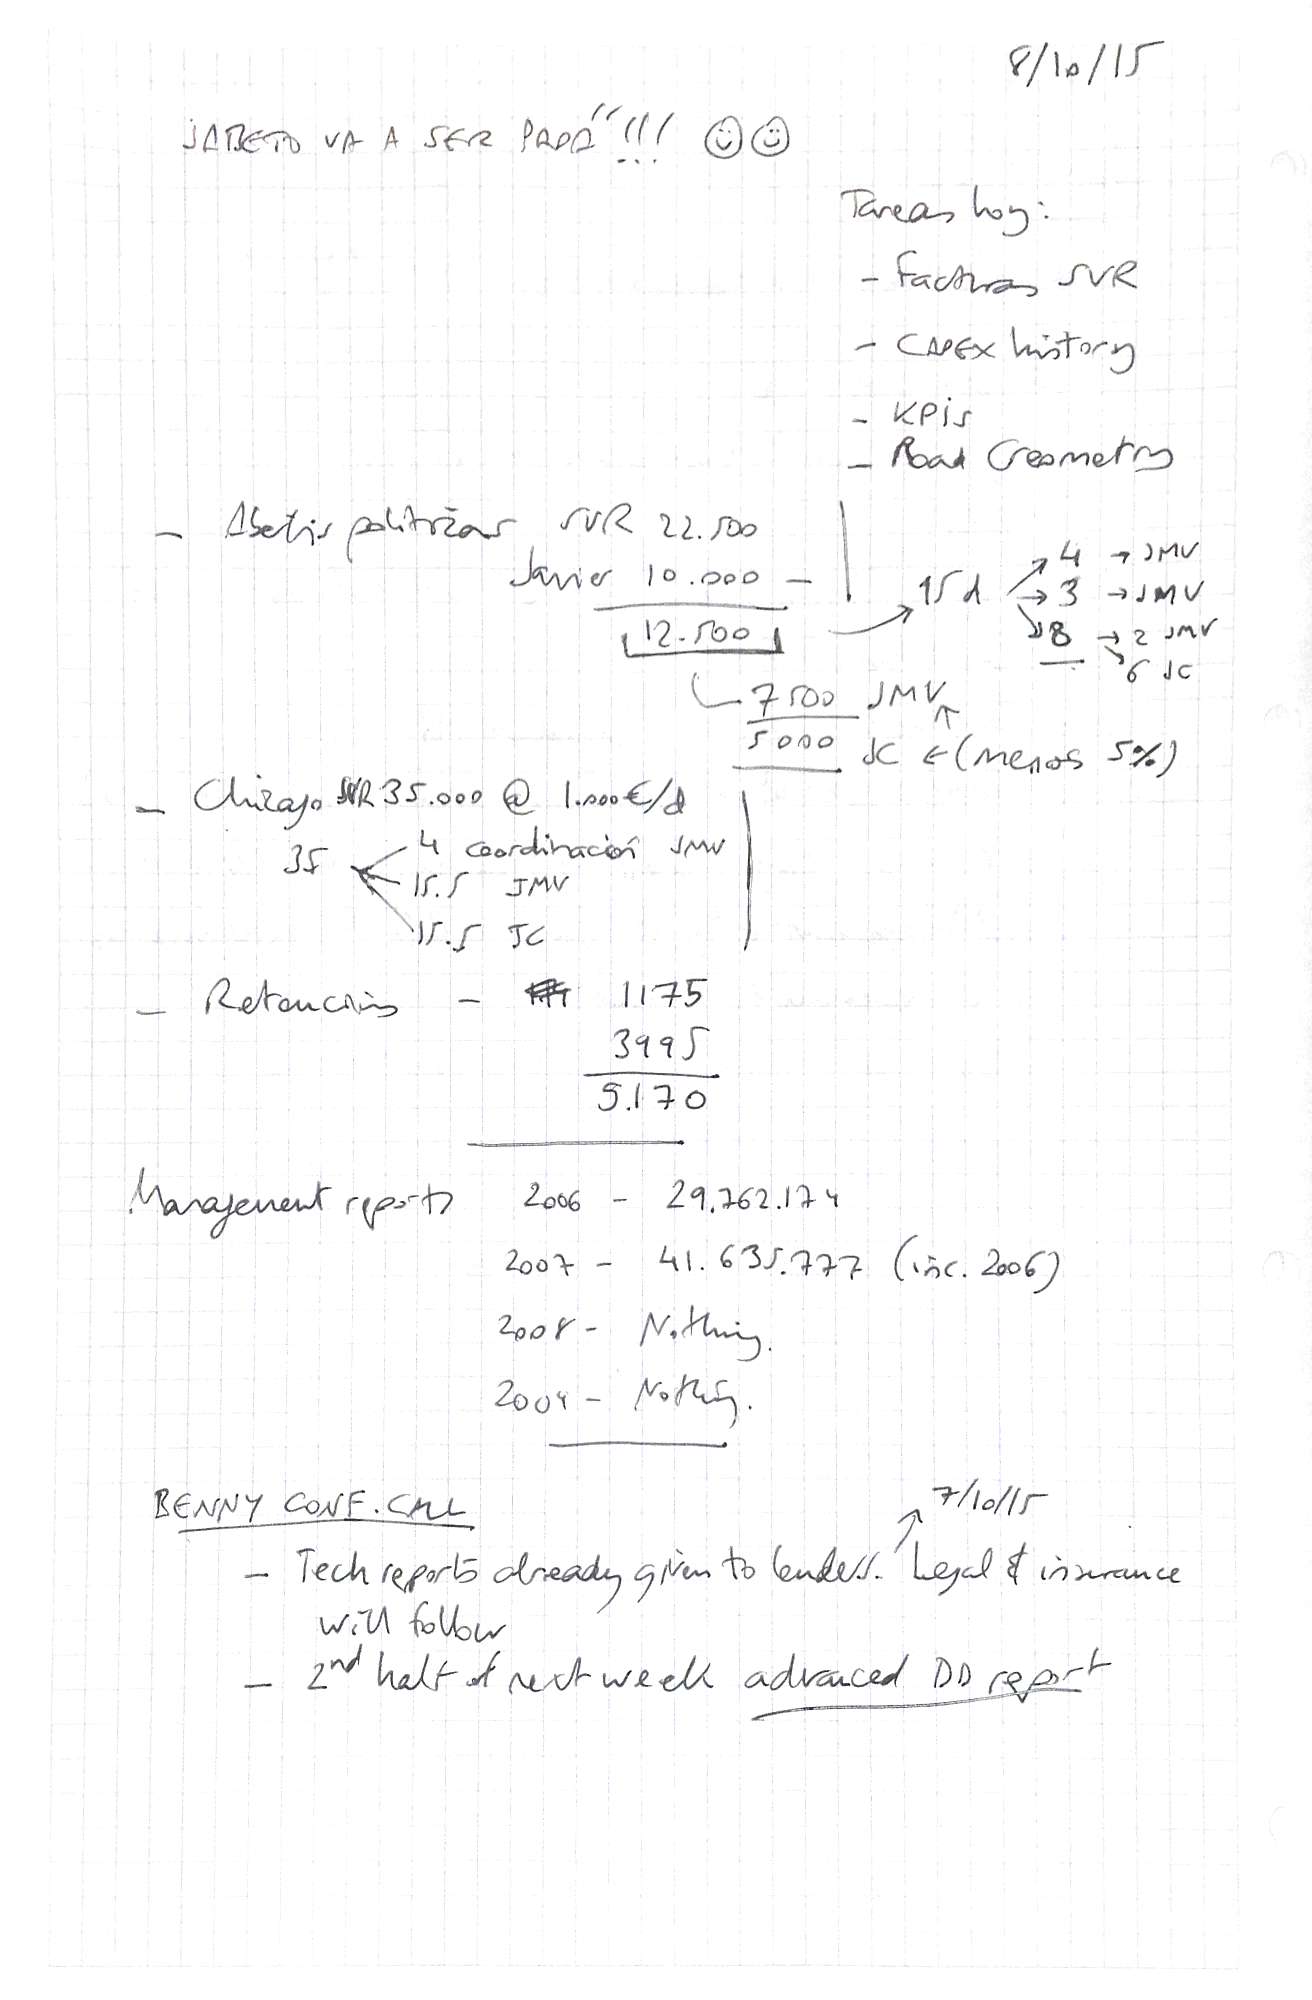 8/10/15
JABETO VA A SER PAPÁ"!!!
Tareas hoy:
- Facturas SVR
- CAPEX history
- KPIs
- Road Geometry
- Abertis SVR 22.500
Javier 10.000 -
12.500
15 d
4 → JMV
3 → JMV
8 → 2 JMV
6 JC
7500 JMV
5000 JC ← (menos 5%)
- SVR 35.000 @ 1.000€/d
35
4 coordinación JMV
15.5 JMV
15.5 JC
- Retención - 1175
3995
5.170
Management reports 2006 - 29.762.174
2007 - 41.635.777 (inc. 2006)
2008 - Nothing.
2009 - Nothing.
BENNY CONF. CALL
7/10/15
- Tech reports already given to lenders. Legal & insurance
will follow
- 2nd half of next week advanced DD report